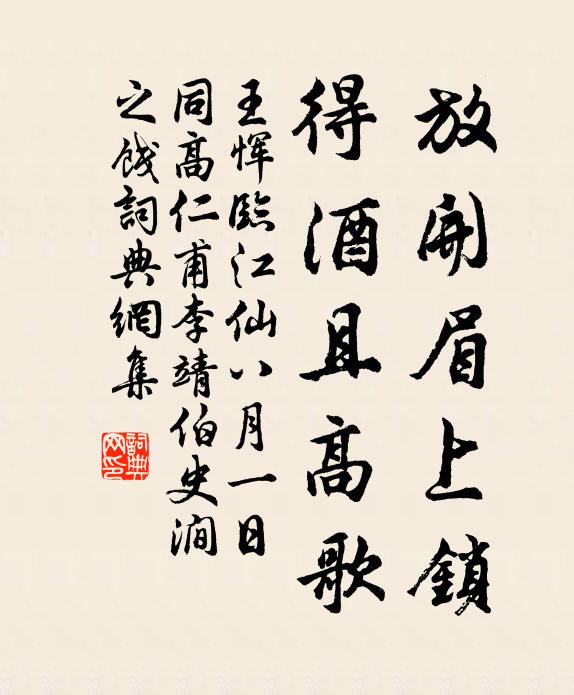 放開眉上鎖
得酒且高歌
王惲臨江仙八月一日
同高仁甫李靖伯史澗
之餞詞典網集
詞典網印